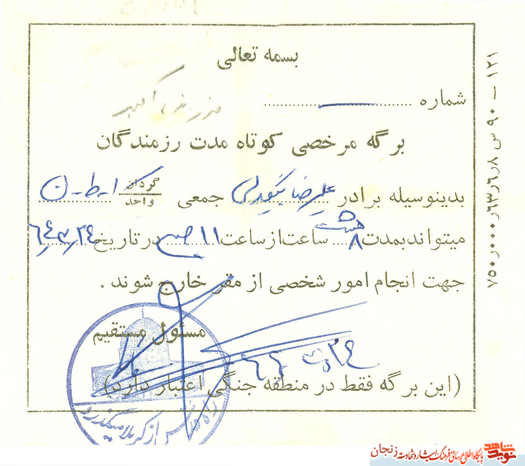 بسمه تعالی
شماره
برگه مرخصی کوتاه مدت رزمندگان
بدینوسیله برادر علیرضا جمعی گردان واحد
میتواند بمدت ۸ ساعت از ساعت ۱۱ صبح در تاریخ ۶۴/۳/۲۴
جهت انجام امور شخصی از مقر خارج شوند .
مسئول مستقیم
۶۴/۳/۲۴
(این برگه فقط در منطقه جنگی اعتبار دارد)
راه قدس از کربلا میگذرد
۱۲۱ — ۹۰ س ۸ر۶ر۶۳ر۰۰۰ر۷۵۰
نوید شاهد
پایگاه اطلاع رسانی فرهنگ ایثار و شهادت زنجان